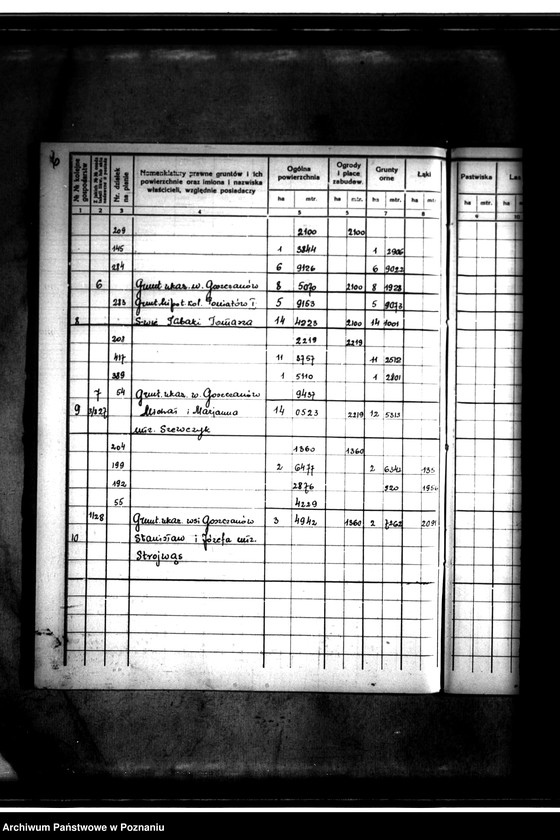 № № kolejne gospodarstw
Nr. działek na planie
Nomenklatury prawne gruntów i ich powierzchnie oraz imiona i nazwiska właścicieli, względnie posiadaczy
Ogólna powierzchnia
Ogrody i place zabudow.
Grunty orne
Łąki
Pastwiska
ha mtr. mtr. ha mtr. ha ha mtr. ha
1 2 3 4 5 6 7 8 9 10
209 2100 2100
145 1 3844 1 2906
284 6 9126 6
6 Grunt ukaz. w. Goszczanów 8 5070 2100 8 1928
283 Grunt hipot. kol. Poniatów I 5 9153 5 9073
8 S-wie Tabaki Tomasza 14 4223 2100 14 1001
203 2219 2219
417 11 3757 11 2512
389 1 5110 1 2801
7 54 Grunt. ukaz. w. Goszczanów 9437
9 3/3 27 i Marjanna 14 0523 2219 12 5313
mż. Szewczyk
204 1360 1360
199 2 6477 2 6342
192 2876 920
55 4229
1/28 Grunt. ukaz. wsi Goszczanów 3 4942 1360 2 7262
10 Stanisław i Józefa mż.
Strojwąs
Archiwum Państwowe w Poznaniu